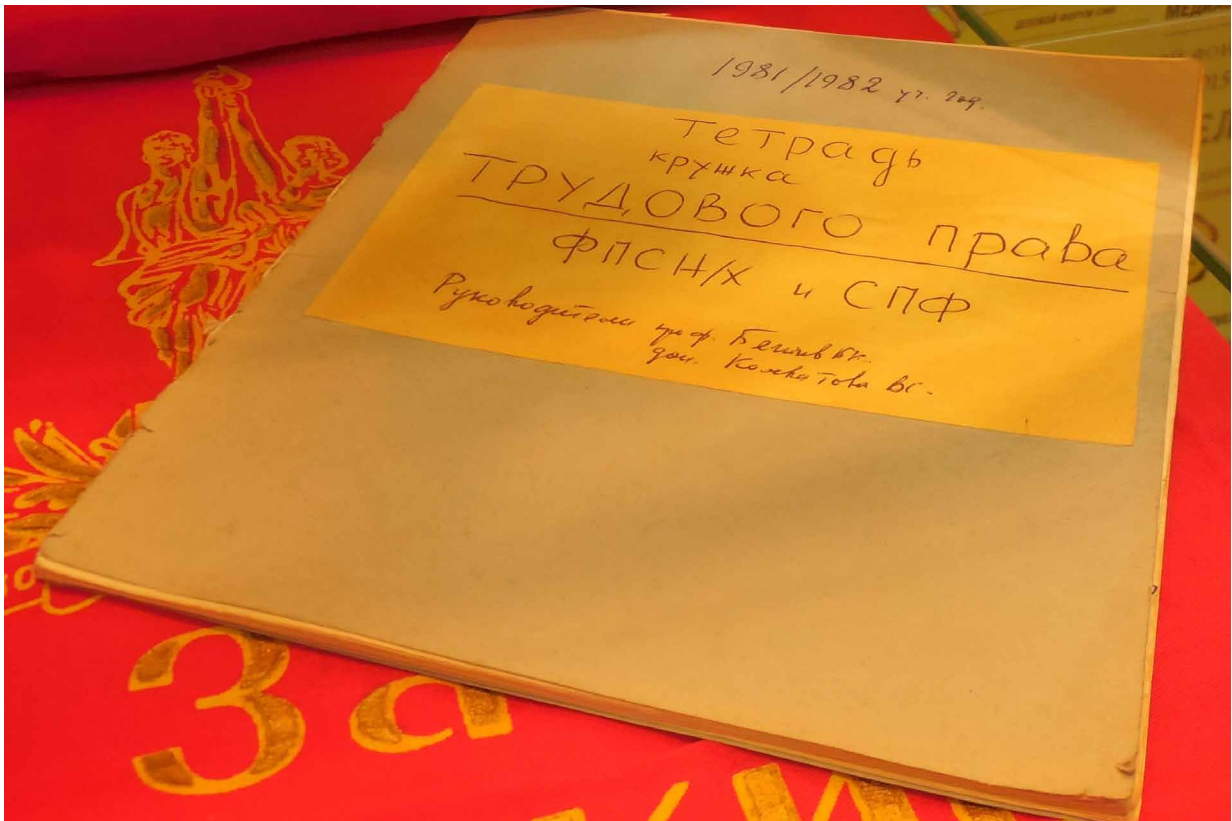 1981/1982 уч. год.
Тетрадь
кружка
ТРУДОВОГО права
ФПСН/Х и СПФ
Руководители проф. Бегичев БК.
доц.
За